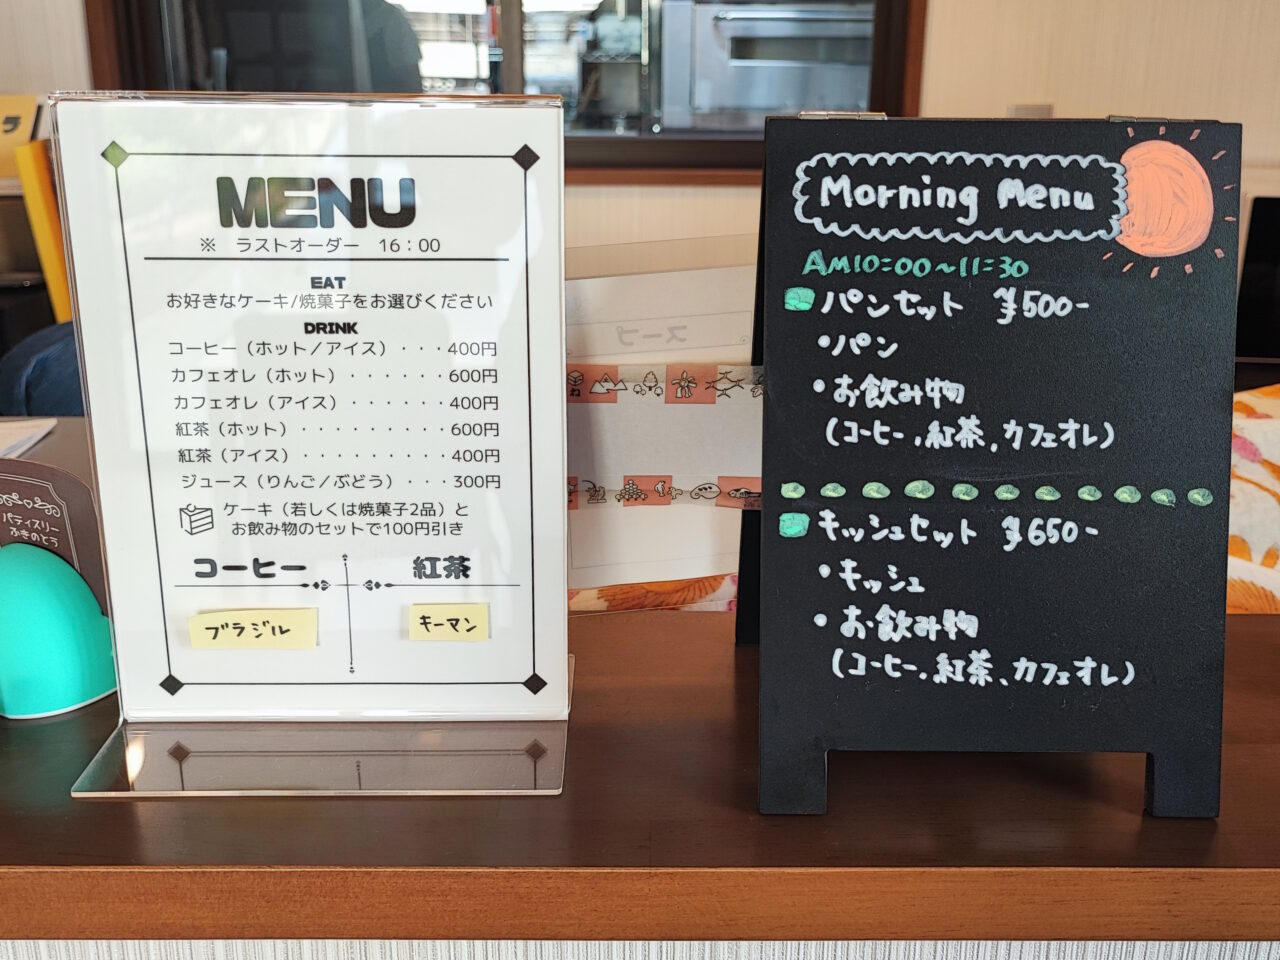 MENU
※ ラストオーダー 16:00
EAT
お好きなケーキ/焼菓子をお選びください
DRINK
コーヒー（ホット／アイス）・・・400円
カフェオレ（ホット）・・・・・・600円
カフェオレ（アイス）・・・・・・400円
紅茶（ホット）・・・・・・・・・600円
紅茶（アイス）・・・・・・・・・400円
ジュース（りんご／ぶどう）・・・300円
ケーキ（若しくは焼菓子2品）と
お飲み物のセットで100円引き
コーヒー 紅茶
ブラジル キーマン
パティスリー
ふきのとう
スープ
Morning Menu
AM10:00~11:30
パンセット ¥500-
・パン
・お飲み物
(コーヒー,紅茶、カフェオレ)
キッシュセット ¥650-
・キッシュ
・お飲み物
(コーヒー,紅茶、カフェオレ)